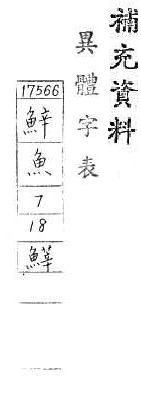 補充資料
異體字表
17566
魚
7
18